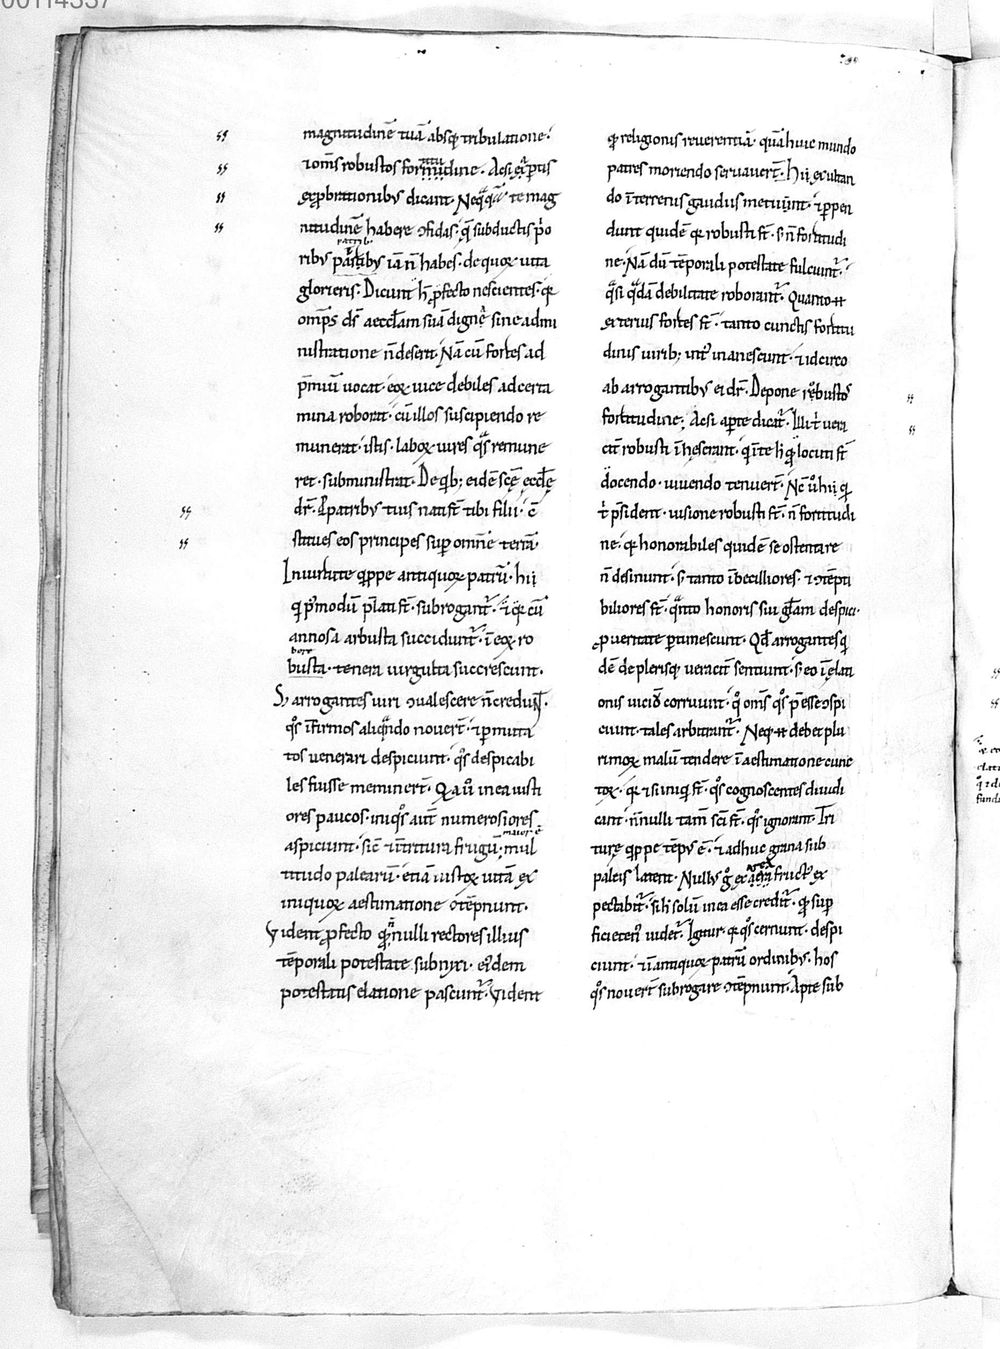 00114337
magnitudinē tuā absq; tribulatione.
⁊ om̄s robustos formidine. Acsi exꝑtis
exꝓbrationibꝰ dicant. Neq̄q̄ te mag
nitudinē habere ↄfidas. q̄ subductis p̓o
ribꝰ patribꝰ iā n̄ habes. de quoꝝ uita
glorieris. Dicunt h̄ ꝓfecto nescientes. qꝫ
om̄ps d̄s aecclām suā dignę sine admi
nistratione n̄ deserit. Nā cū fortes ad
p̄miū uocat. eoꝝ uice debiles ad certa
mina roborat. cū illos suscipiendo re
munerat. istis. laboꝝ uires q̄s remune
ret. subministrat. De qͥb; eidē scę ecclę
dr̄. Ꝓ patribꝰ tuis nati st̄ tibi filii. ē
statues eos principes sup omnē terrā.
In uirtute qͥppe antiquoꝝ patrū. hii
qͥ p̓modū p̄lati st̄. subrogant᷒. ⁊ qꝫ cū
annosa arbusta succidunt᷒. ī eoꝝ ro
bore
busta. tenera uirgulta succrescunt.
Sꝫ arrogantes uiri ↄualescere n̄ credunt᷒
qͦs īfirmos aliqͣndo nouert̄. ⁊ ꝑmuta
tos uenerari despiciunt. qͦs despicabi
les fuisse meminert̄. Qꝛ aū in ea iusti
ores paucos. iniqͦs aut̄ numerosiores
maior ē
aspiciunt. sic̄ ⁊ ī tritura frugū. mul
titudo palearū. etiā iustoꝝ uitā ex
iniquoꝝ aestimatione ↄtēpnunt.
Vident ꝓfecto qꝫ n̄nulli rectores illius
tēporali potestate subnixi. eidem
potestatis elatione pascunt᷒. Vident
qꝫ religionis reuerentiā. quā huic mundo
patres moriendo seruauert̄. hii exultan
do ī terrenis gaudiis metiunt᷒. ⁊ ꝑpen
dunt quidē qꝫ robusti st̄. sꝫ n̄ fortitudi
ne. Nā dū tēporali potestate fulciunt᷒.
qͣsi qͣdā debilitate roborant᷒. Quanto .n.
exterius fortes st̄. tanto cunctis fortitu
dinis uirib; int᷒ inanescunt. ⁊ idcirco
ab arrogantibꝰ ei dr̄. Depone robustos
fortitudine; Acsi aperte dicat᷒. Illi i uera
cit᷒ robusti īhęserant. qͥ in te h̄ qͣ locuti st̄
docendo. uiuendo tenuert̄. Nc̄ u̓ hii qͥ
t̓ p̄sident. uisione robusti st̄. n̄ fortitudi
ne. qꝫ honorabiles quidē se ostentare
n̄ desinunt. sꝫ tanto ībecilliores. ⁊ ↄtēpti
biliores st̄. qͣnto honoris sui glām despici
ꝓ ueritate ꝑtimescunt. Qd̄ arrogantes qͥ
dē de plerisq; ueracit᷒ sentiunt. sꝫ eo ī elati
onis uicio corruunt. qͦ om̄s qͦs p̄esse ↄspi
ciunt. tales arbitrant᷒. Neq; .n. debet plu
rimoꝝ malū tendere ī aestimatione cunc
toꝝ. qꝫ ⁊ si iniqͥ st̄. qͦs cognoscentes diiudi
cant. n̄nulli tam̄ sc̄i st̄. qͦs ignorant. Tri
turę qͥppe tēpꝰ ē. ⁊ adhuc grana sub
paleis latent. Nullꝰ g̊ ex area fructꝰ ex
pectabit᷒. si h̓ solū in ea esse credit᷒. qꝫ sup
ficie ten᷒ uidet᷒. Igitur. qꝫ qͦs cernunt. despi
ciunt. ⁊ ī antiquoꝝ patrū ordinibꝰ. hos
qͦs nouert̄ subrogare ↄtēpnunt. Apte sub